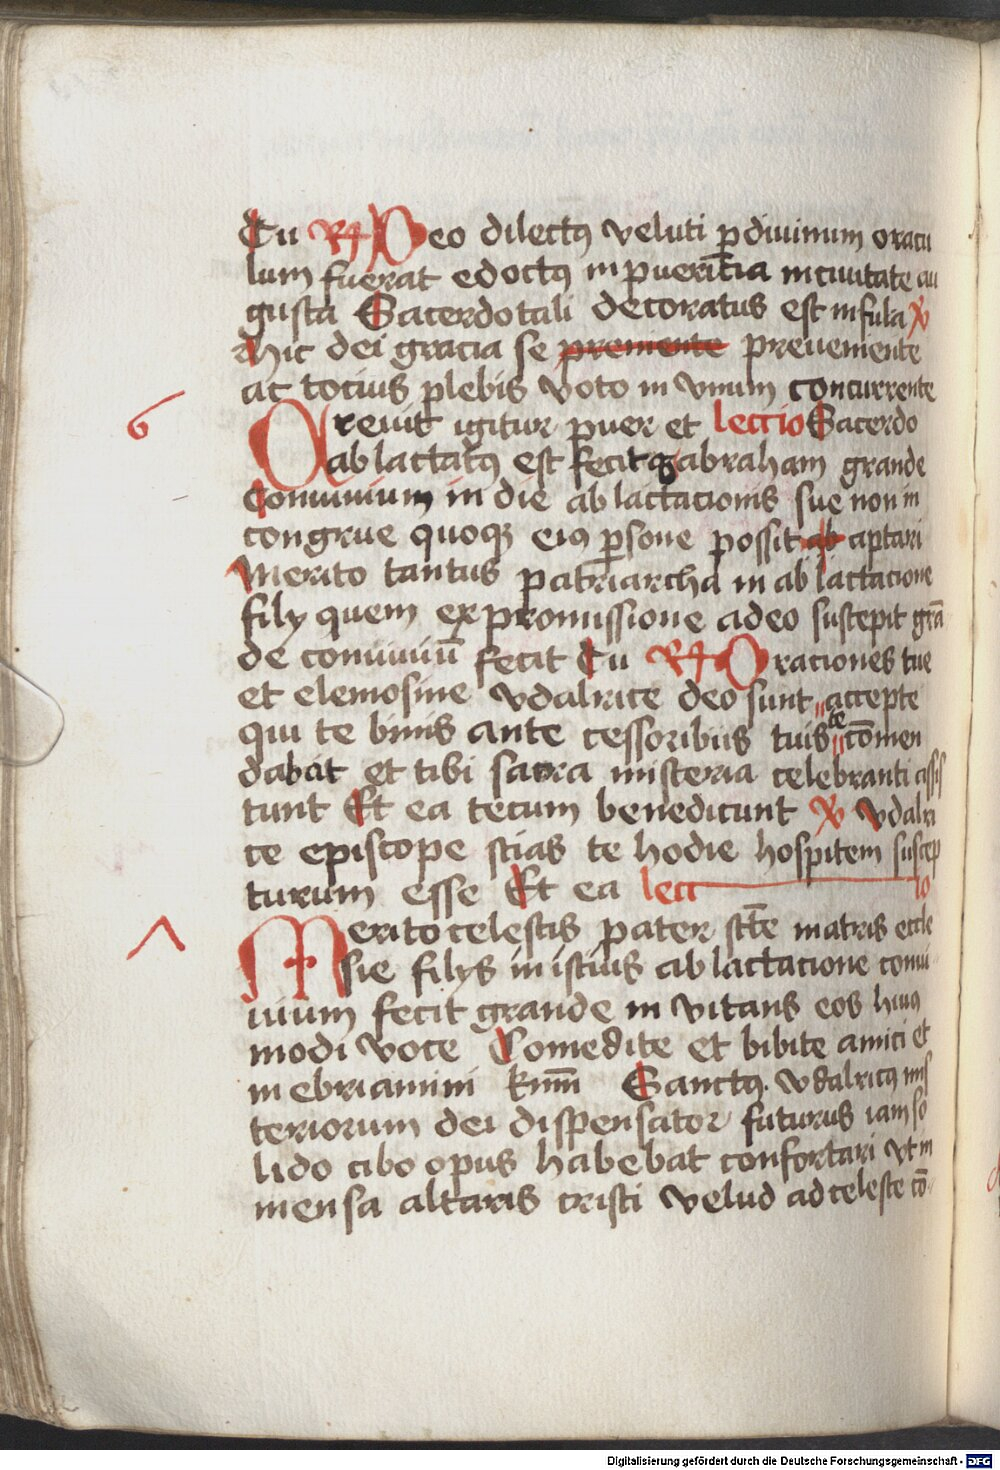 Tu R Deo dilectꝰ veluti ꝑ diuinum oracu
lum fuerat edoctꝰ in puericia in ciuitate au
gusta Sacerdotali decoratus est infula V
hic dei gracia se premente preueniente
ac tocius plebis voto in vnum concurrente
6
Creuit igitur puer et lectio Sacerdo
ab lactatꝰ est fecitqꝫ abraham grande
Conuiuium in die ab lactacionis sue non in
congrue quoqꝫ eiꝰ ꝑsone possit ab aptari
Merito tantus patriarcha in ab lactacione
filij quem ex promissione a deo suscepit grā
de conuiuiū fecit Tu R Oraciones tue
et elemosine vdalrice deo sunt accepte
qui te binis ante cessoribus tuis te cōmen
dabat et tibi sacra misteria celebranti assis
tunt Et ea tecum benedicunt V Vdalri
ce episcope scias te hodie hospitem suscep
turum esse Et ea lectio
Merito celestis pater scte matris eccle
sie filijs in istius ab lactacione conui
uium fecit grande in vitans eos huiꝰ
modi voce Comedite et bibite amici et
in ebriamini krmi Sanctꝰ vdalricꝰ mis
teriorum dei dispensator futurus iam so
lido cibo opus habebat confortari vt in
mensa altaris cristi velud ad celeste cō
Digitalisierung gefördert durch die Deutsche Forschungsgemeinschaft - DFG